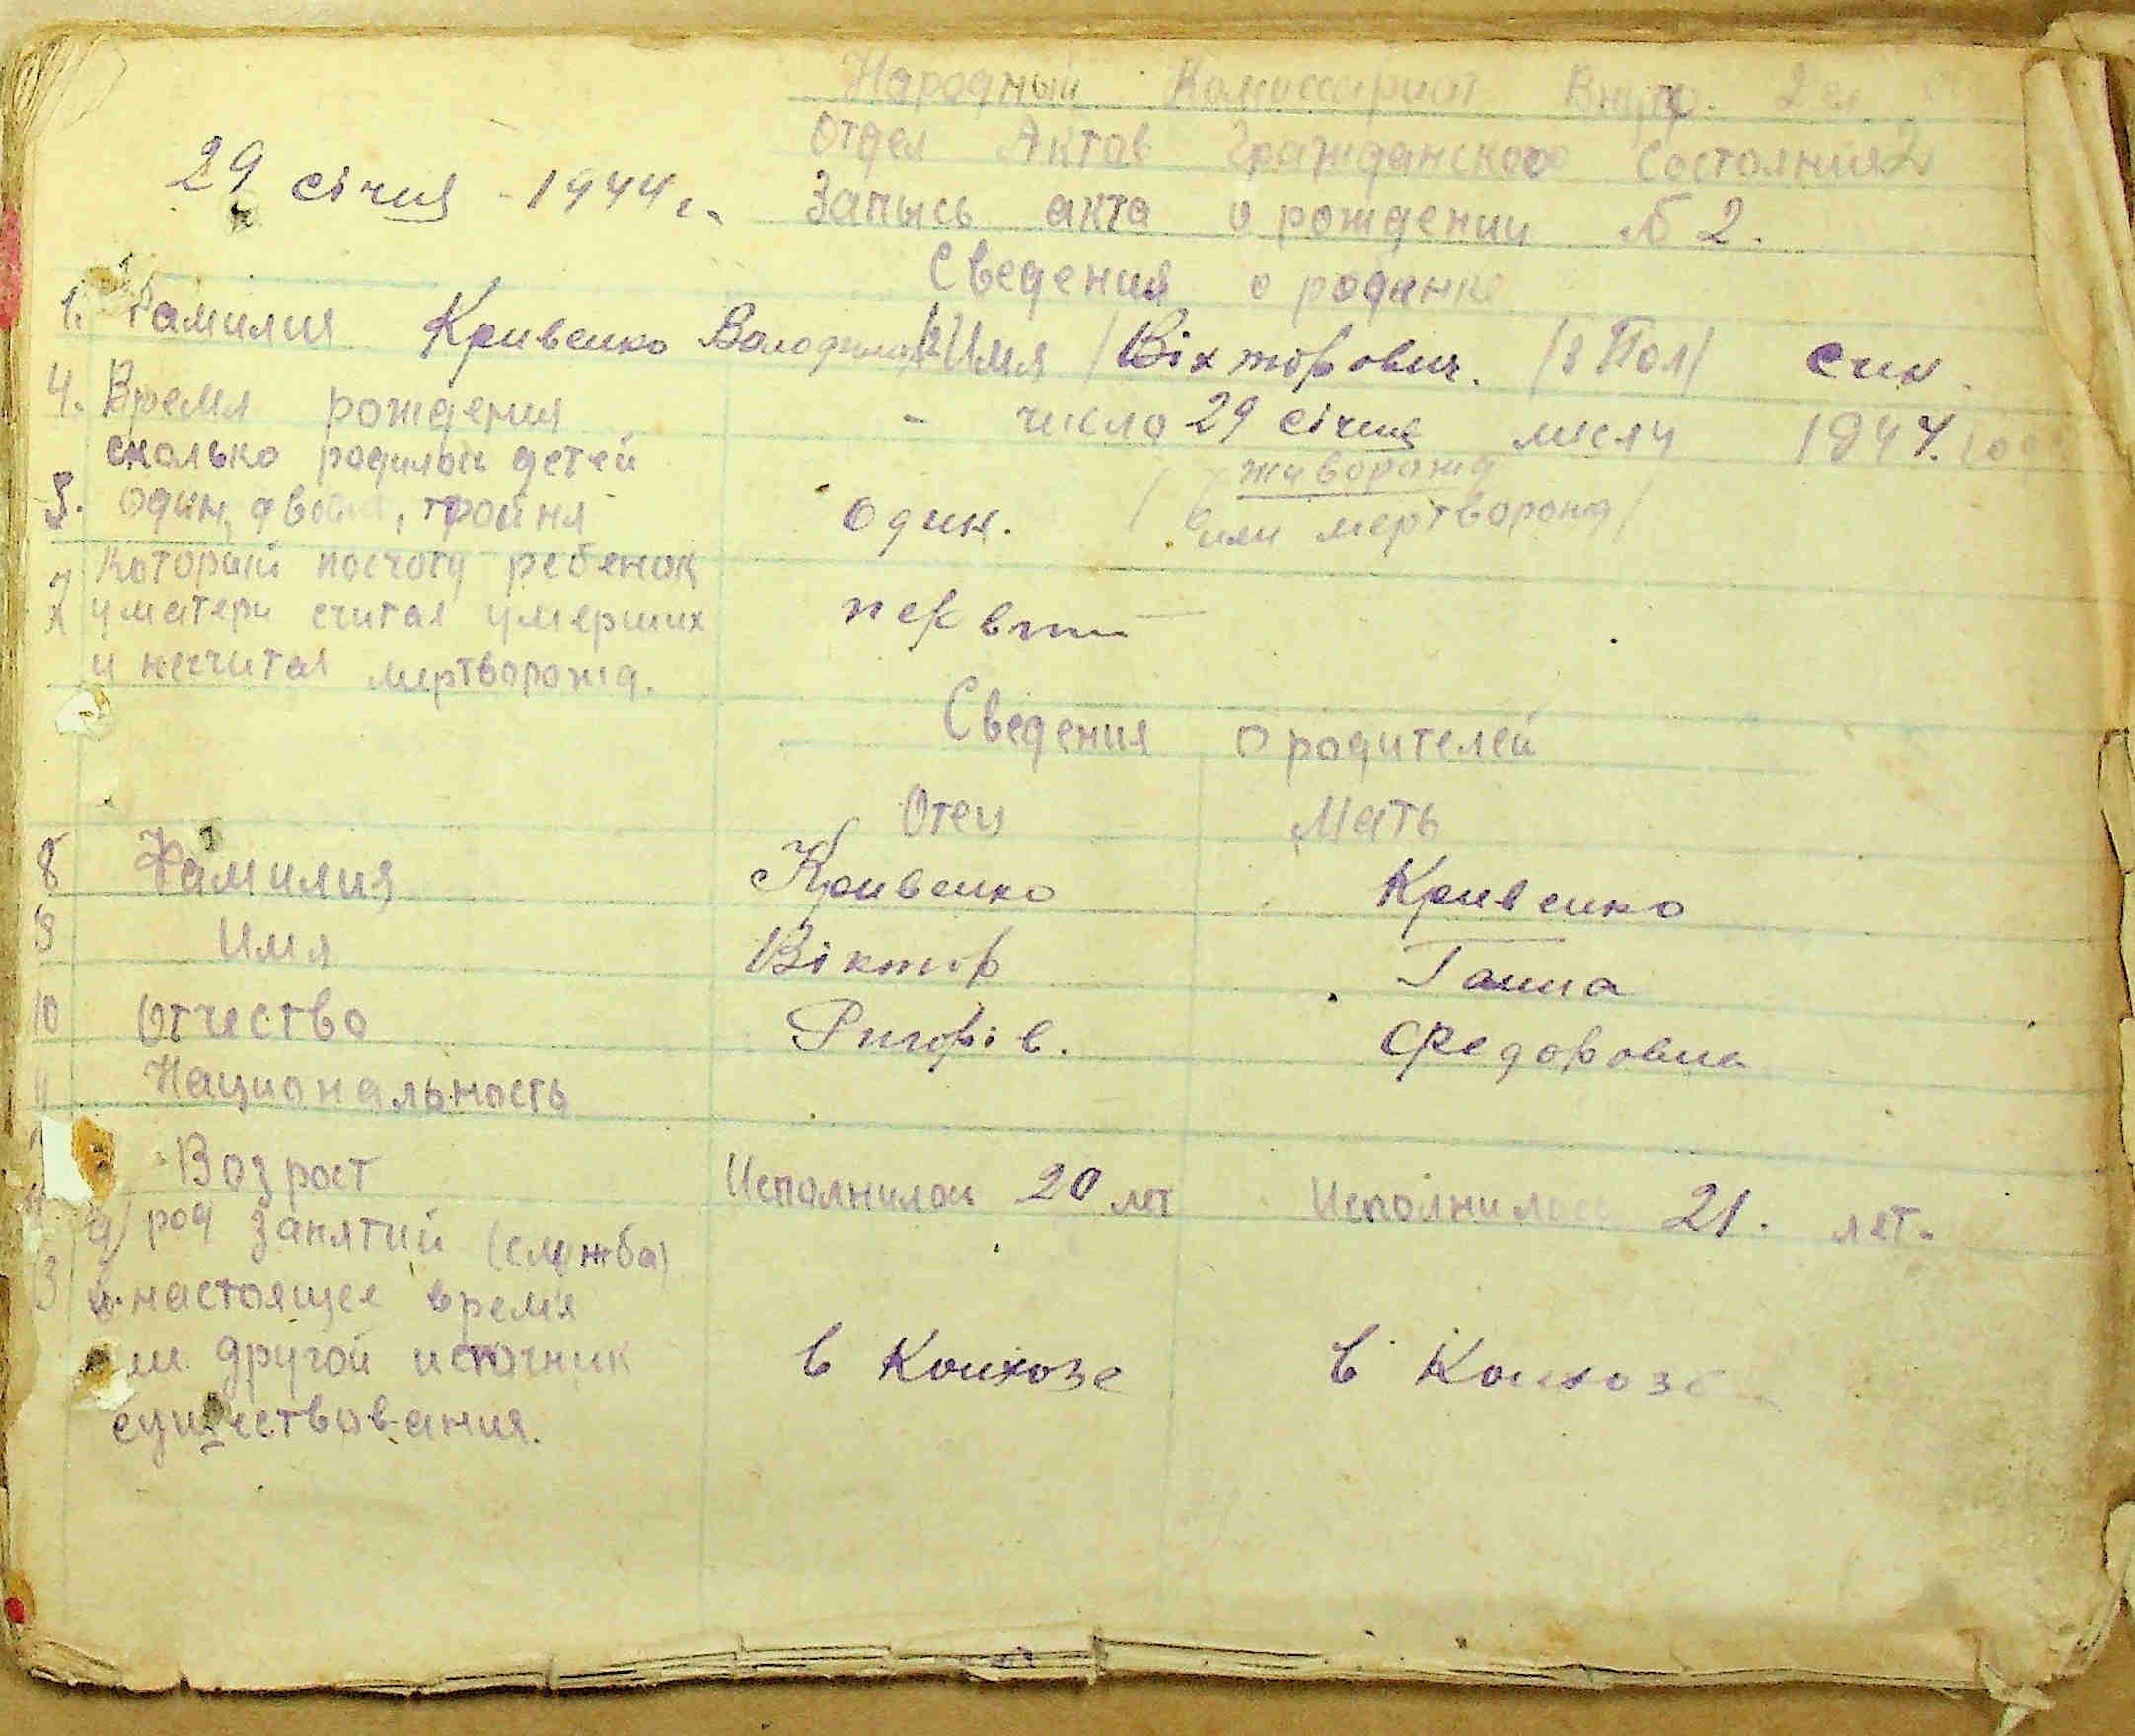 Народный Комиссариат Внутр. Дел
Отдел Актов Гражданского Состояния
29 січня - 1944 г. Запысь акта о рождении № 2.
Сведения о родинке
1. Фамилия Кривенко Володимир /2 Имя/ Вікторович. /3 Пол/ син.
4. Время рождения - число 29 січня месяц 1944. год
сколько родилось детей /живорожд
5. один, двойня, тройня один. или мертворожд/
который посчоту ребенок
7 у матери считая умерших первый
и несчитая мертворожд.
Сведения о родителей
Отец Мать
8 Фамилия Кривенко Кривенко
9 Имя Віктор Ганна
10 Отчество Григорів. Федоровна
11 Национальность
Возрост Исполнилось 20 лет Исполнилось 21. лет.
а) род занятий (служба)
13 в настоящее время
или другой источник в Колхозе в Колхозе
существования.